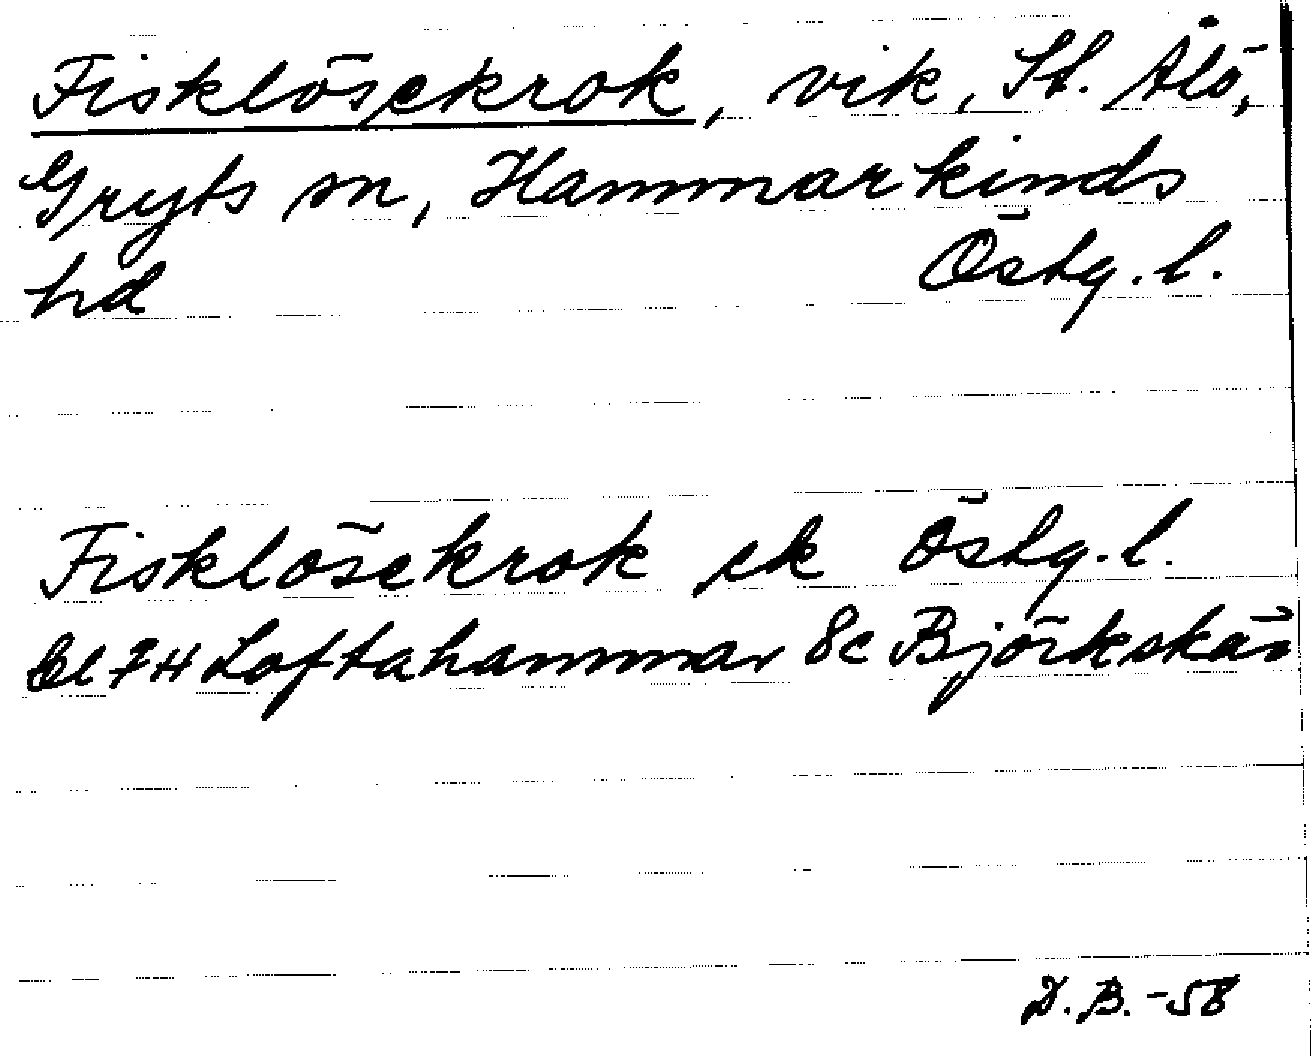 Fisklösekrok, vik, St. Ålö,
Gryts sn, Hammarkinds
hd Östg. l.
Fisklösekrok ek Östg. l.
Bl 7H Loftahammar 8c Björkskär
D.B. -58